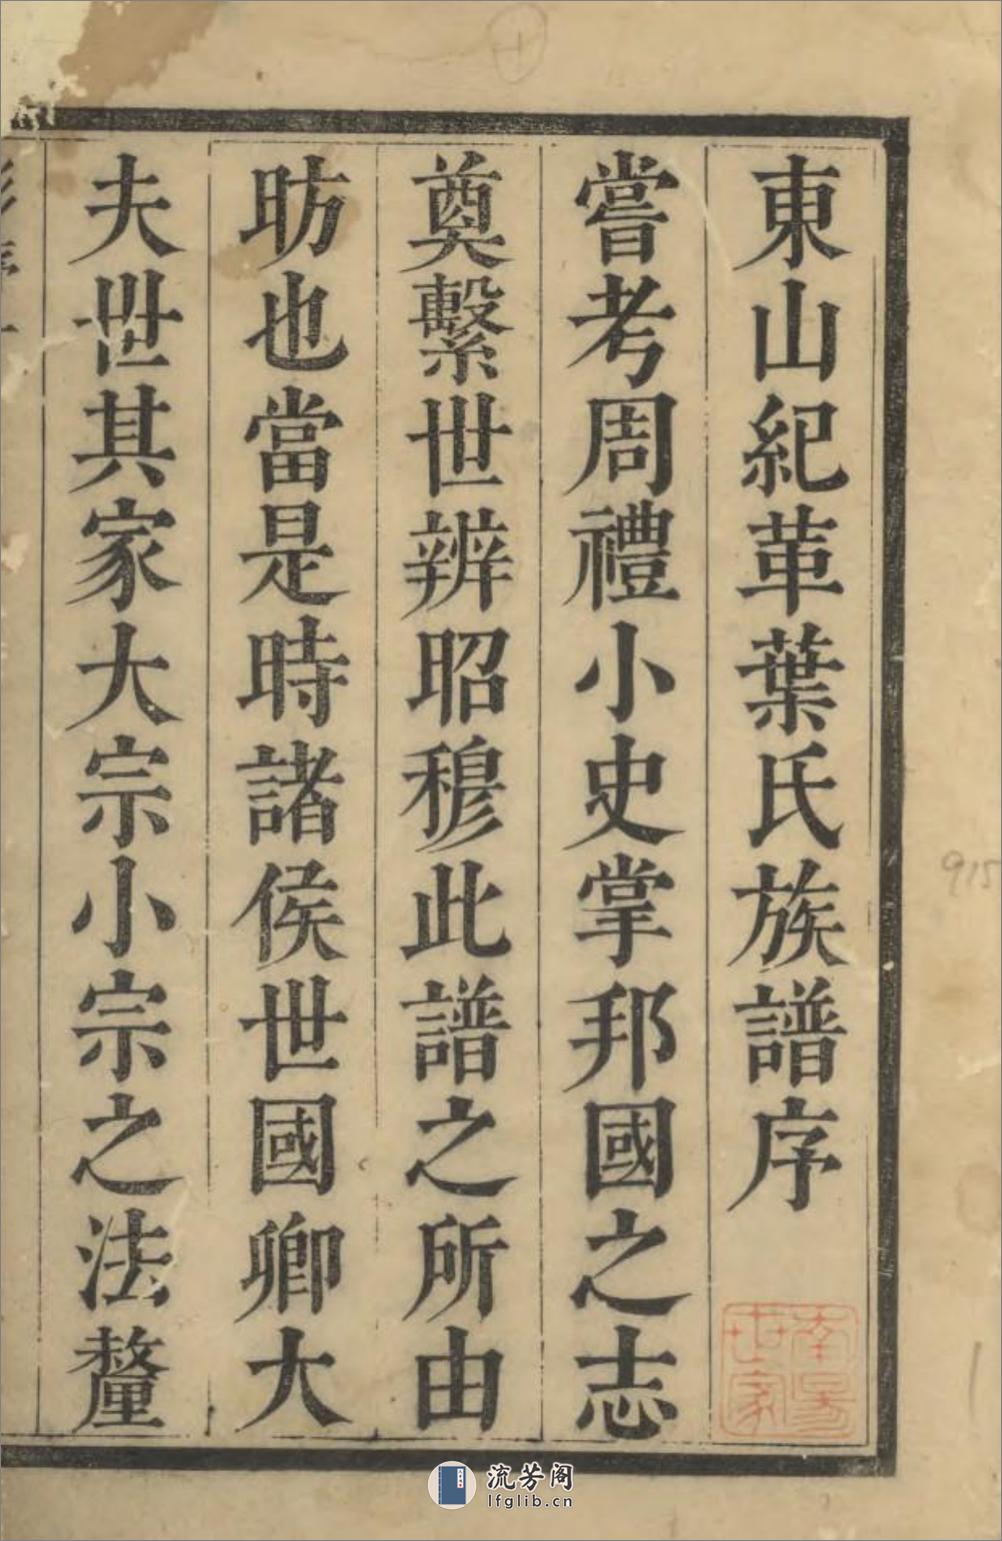 東山紀革葉氏族譜序
嘗考周禮小史掌邦國之志
奠繫世辨昭穆此譜之所由
昉也當是時諸侯世國卿大
夫世其家大宗小宗之法釐
南陽
世家
915
流芳阁
lfglib.cn